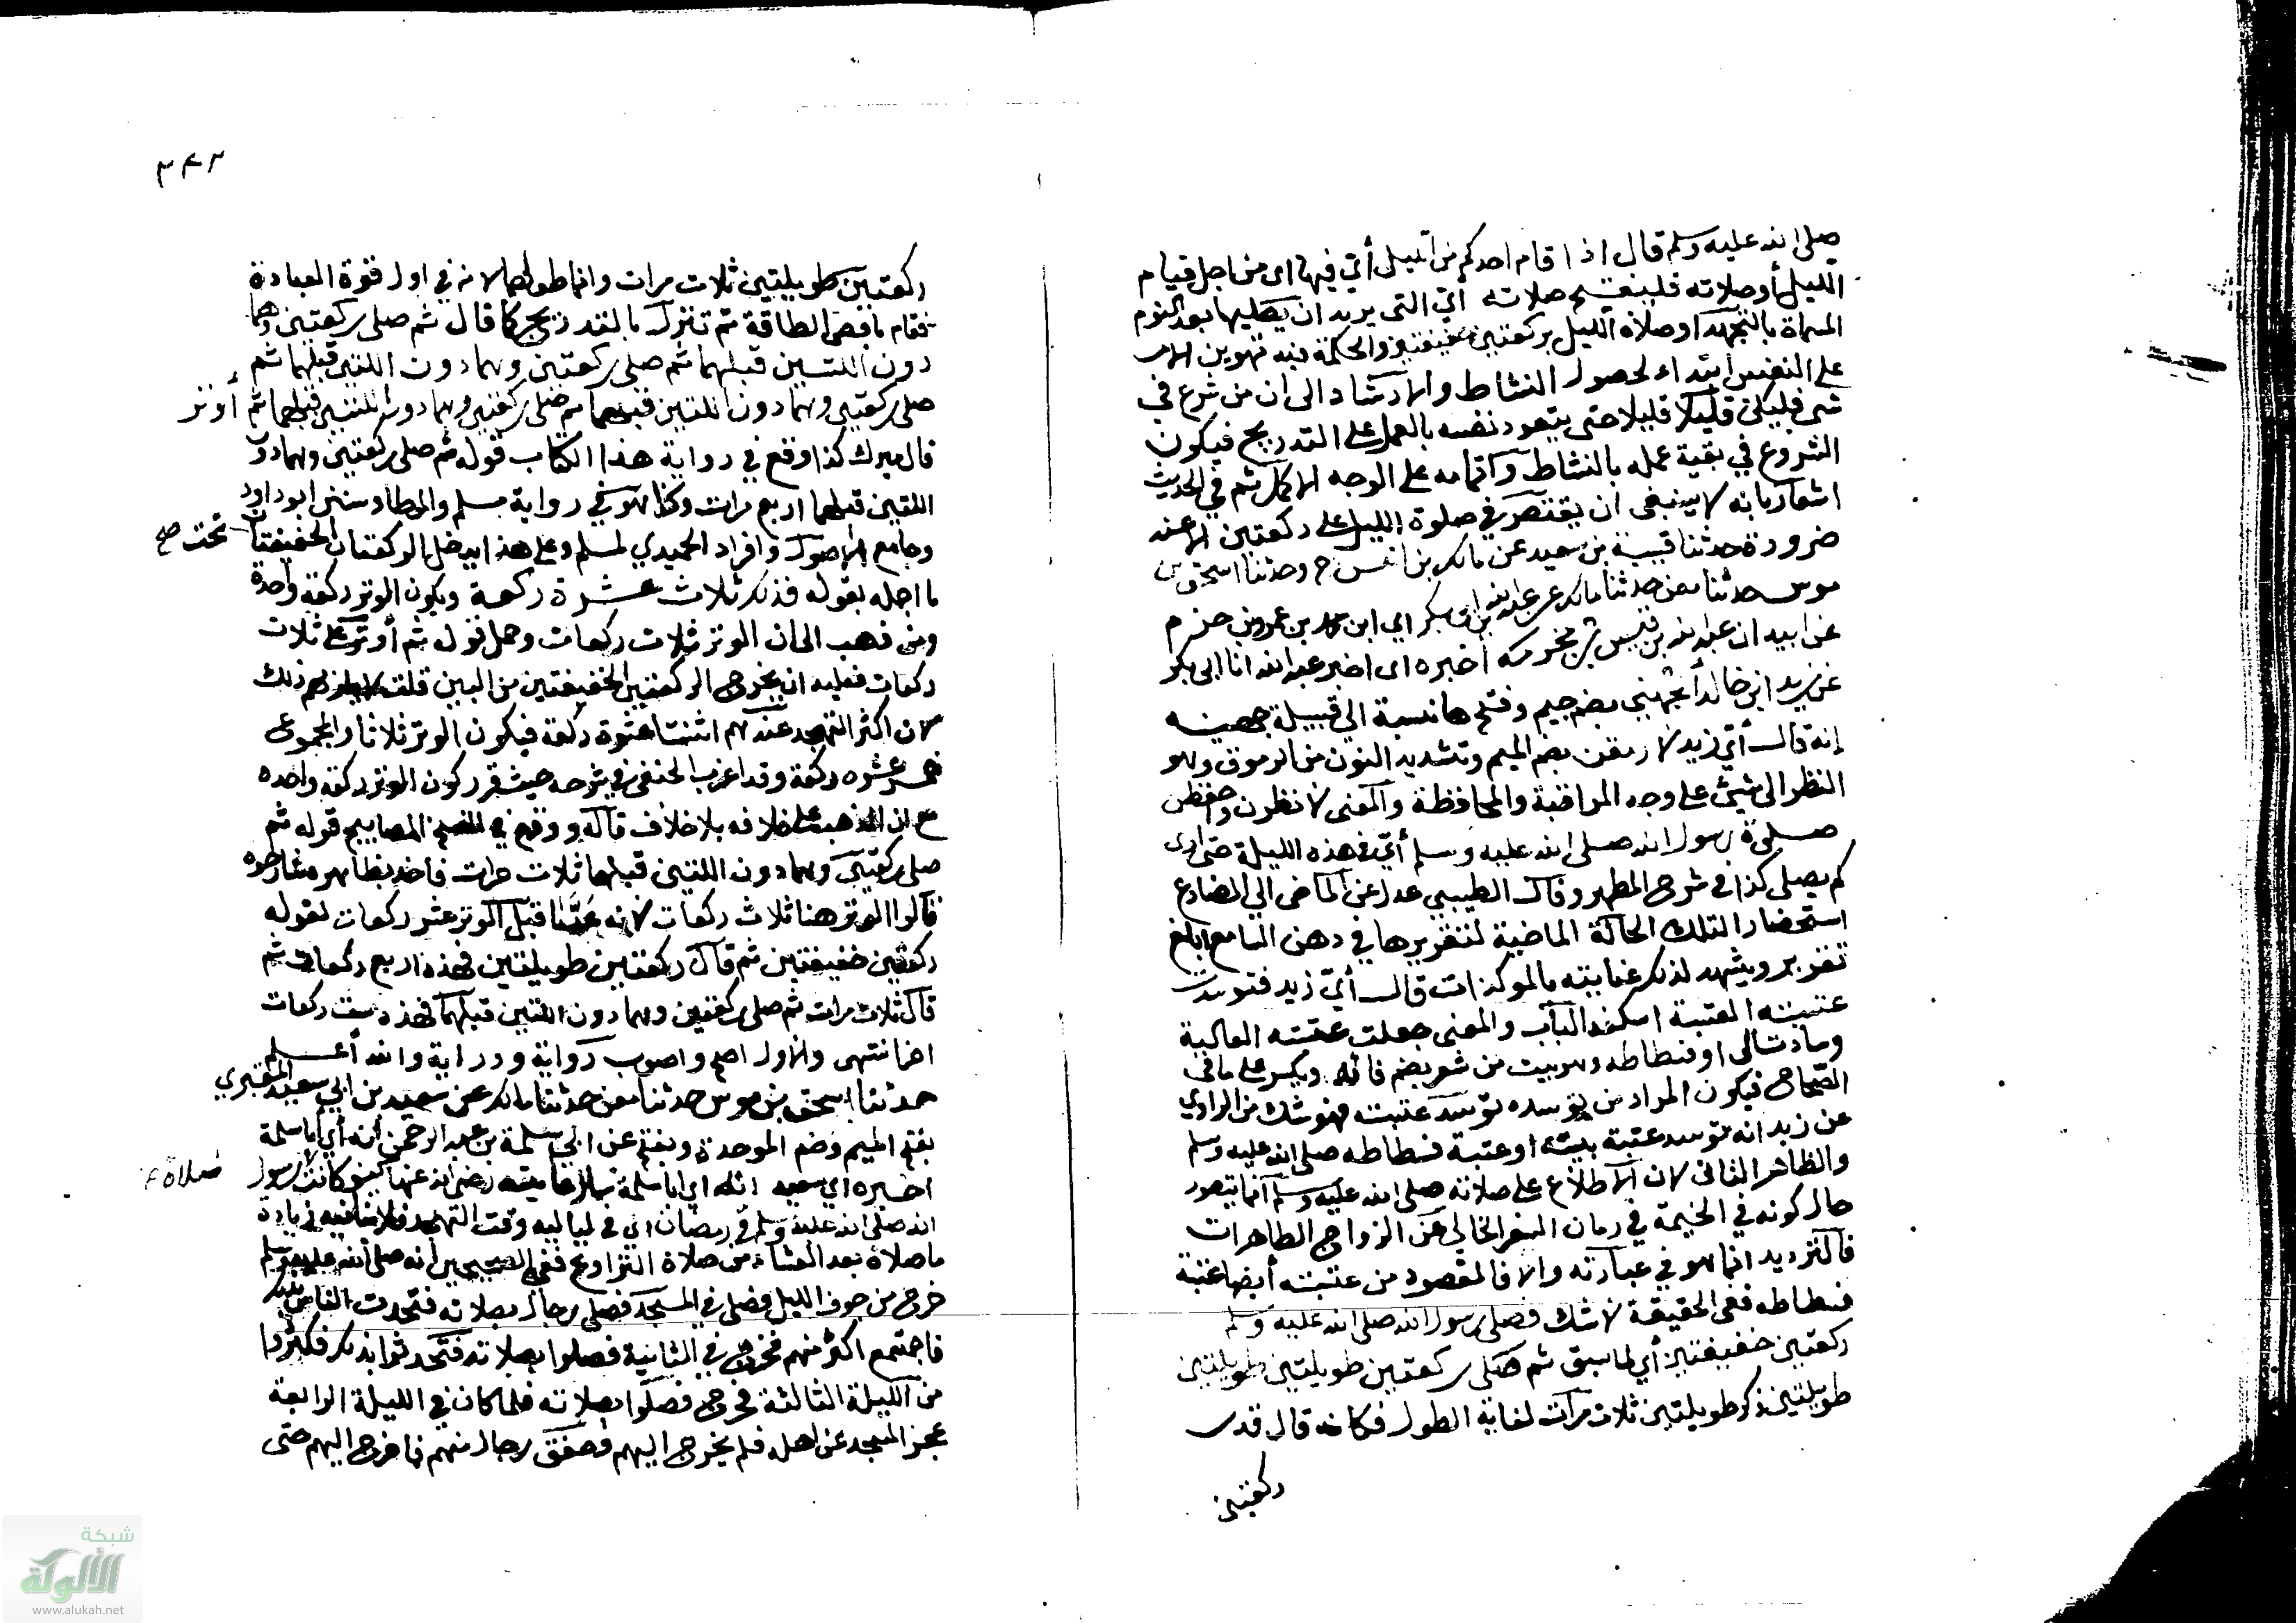 صلى الله عليه وسلم قال اذا قام احدكم من الليل أي فيها اى من اجل قيام
الليل أو صلاته فليفتتح صلاته أي التى يريد ان يصليها بعد النوم
المسماة بالتهجد او صلاة الليل بركعتين خفيفتين والحكمة فيه تهوين الامر
على النفس ابتداء لحصول النشاط والارشاد الى ان من شرع في
شى فليكن قليلا قليلا حتى يتعود نفسه بالعمل على التدريج فيكون
الشروع في بقية عمله بالنشاط واتمامه على الوجه الاكمل ثم في الحديث
اشعار بانه لا ينبغى ان يقتصر في صلوة الليل على ركعتين الا عند
ضرورة حدثنا قتيبة بن سعيد عن مالك بن انس ح وحدثنا اسحق بن
موسى حدثنا معن حدثنا مالك عن عبد الله بن ابى بكر اي ابن محمد بن عمرو بن حزم
عن ابيه ان عبد الله بن قيس بن مخرمه اخبره اى اخبر عبد الله ابا ابى بكر
عن زيد ابن خالد الجهني بضم جيم وفتح ها نسبة الى قبيلة جهينه
إنه قال أي زيد لأرمقن بضم الميم وتشديد النون من الرموق وهو
النظر الى شئ على وجه المراقبة والمحافظة والمعنى لانظرن واحفظن
صلوة رسول الله صلى الله عليه وسلم أي في هذه الليلة حتى ارى
كم يصلى كذا في شرح المظهر وقال الطيبى عدل عن الماضى الى المضارع
استحضارا لتلك الحالة الماضية لتقريرها في ذهن السامع ابلغ
تقرير ويشهد لذلك عنايته بالموكدات قال أي زيد فتوسدت
عتبته العتبة اسكفة الباب والمعنى جعلت عتبته العالية
وسادتى او فسطاطه وهو بيت من شعر بضم فائه ويكسر على ما فى
الصحاح فيكون المراد من توسده توسد عتبته فهو شك من الراوي
عن زيد انه توسد عتبة بيته او عتبة فسطاطه صلى الله عليه وسلم
والظاهر الثانى لان الاطلاع على صلاته صلى الله عليه وسلم انما يتصور
حال كونه في الخيمة في زمان السفر الخالي عن الزواج الطاهرات
فالترديد انما هو في عبارته والا فالمقصود من عتبته أيضا عتبة
فسطاطه ففى الحقيقة لا شك فصلى رسول الله صلى الله عليه وسلم
ركعتين خفيفتين أي لما سبق ثم صلى ركعتين طويلتين طويلتين
طويلتين ذكر طويلتين ثلاث مرات لغاية الطول فكانه قال قدر
ركعتين
٢٤٣
ركعتين طويلتين ثلاث مرات وانما طولهما لانه في اول قوة العبادة
فقام باقصى الطاقة ثم تنزل بالتدريج كما قال ثم صلى ركعتين وهما
دون اللتين قبلهما ثم صلى ركعتين وهما دون اللتين قبلهما ثم
صلى ركعتين وهما دون اللتين قبلهما ثم صلى ركعتين وهما دون اللتين قبلهما ثم أوتر
قال ميرك كذا وقع في رواية هذا الكتاب قوله ثم صلى ركعتين وهما دون
اللتين قبلهما اربع مرات وكذا هو في رواية مسلم والموطا وسنن ابو داود
وجامع الاصول وافراد الحميدي لمسلم وعلى هذا ايدخل الركعتان الخفيفتان تحت صح
ما اجمله بقوله فذلك ثلاث عشرة ركعة ويكون الوتر ركعة واحدة
ومن ذهب الى ان الوتر ثلاث ركعات وحمل قوله ثم أوتر على ثلاث
ركعات فعليه ان يخرج الركعتين الخفيفتين من البين قلت لا يلزم ذلك
لان اكثر التهجد عندهم اثنتا عشرة ركعة فيكون الوتر ثلاثا والمجموع
خمس عشره ركعة وقد اغرب الحنفى في شرحه حيث قرر كون الوتر ركعة واحده
مع ان المذهب على خلافه بلا خلاف قاله ووقع في نسخ المصابيح قوله ثم
صلى ركعتين وهما دون اللتين قبلهما ثلاث مرات فاخذ بظاهره شارحوه
قالوا الوتر هنا ثلاث ركعات لانه عد ما قبل الوتر عشر ركعات لقوله
ركعتين خفيفتين ثم قال ركعتين طويلتين فهذه اربع ركعات ثم
قال ثلاث مرات ثم صلى ركعتين وهما دون اللتين قبلهما فهذه ست ركعات
اخر انتهى والاول اصح واصوب رواية ودراية والله أعلم
حدثنا اسحق بن موسى حدثنا معن حدثنا مالك عن سعيد بن ابي سعيد المقبري
بفتح الميم وضم الموحدة وبفتح عن ابي سلمة بن عبد الرحمن أنه أي أبا سلمة
اخبره اي سعيد انه اي ابا سلمة سال عايشه رضى الله عنها كيف كانت صلاة رسول
الله صلى الله عليه وسلم في رمضان اي في لياليه وقت التهجد فلا ينافيه زيادة
ما صلاة بعد العشاء من صلاة التراويح ففى الصحيحين انه صلى الله عليه وسلم
خرج من جوف الليل فصلى في المسجد فصلى رجال بصلاته فتحدث الناس بذلك
فاجتمع اكثر منهم فخرج في الثانية فصلوا بصلاته فتحدثوا بذلك فكثروا
من الليلة الثالثة فخرج فصلوا بصلاته فلما كان في الليلة الرابعة
عجز المسجد عن اهله فلم يخرج اليهم فصفق رجال منهم فما خرج اليهم حتى
شبكة
الألوكة
www.alukah.net